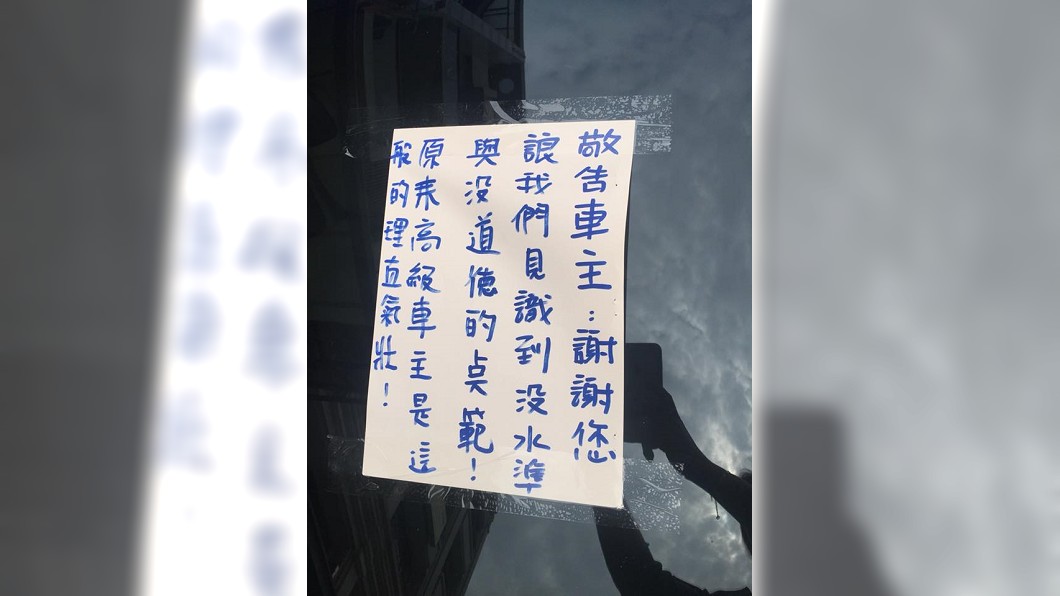 敬告車主：謝謝您
讓我們見識到没水準
與没道德的典範！
原來高級車主是這
般的理直氣壯！